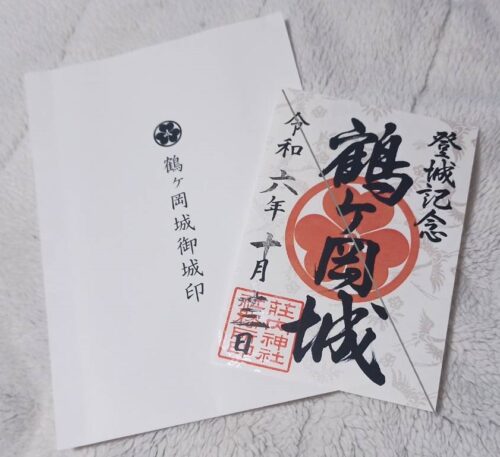 鶴ヶ岡城御城印
登城記念
鶴ヶ岡城
令和六年十月十三日
荘内神社